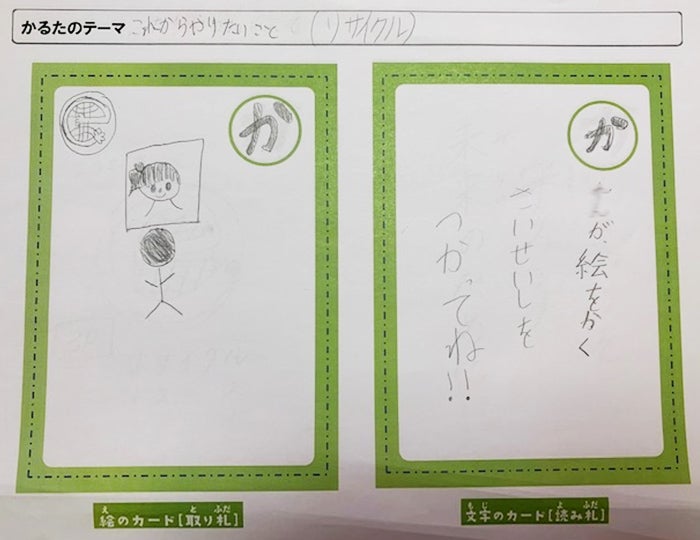 かるたのテーマ これからやりたいこと (リサイクル)
が
が
が、絵をかく
さいせいしを
つかってね!!
え と ふだ
絵のカード[取り札]
もじ よ ふだ
文字のカード[読み札]